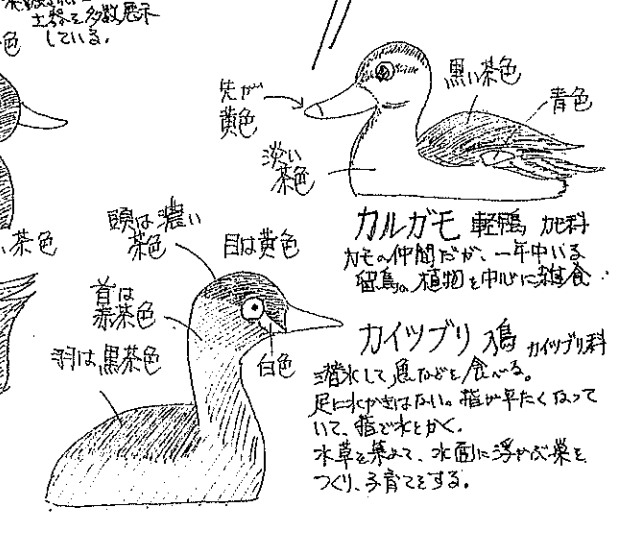 土器を多数展示
している。
色
い茶色
先が
黄色
淡い
茶色
黒い茶色
青色
カルガモ 軽鴨 カモ科
カモの仲間だが、一年中いる
留鳥。植物を中心に雑食。
頭は濃い
茶色
目は黄色
首は
赤茶色
羽は黒茶色
白色
カイツブリ カイツブリ科
潜水して魚などを食べる。
足に水かきはない。指が平たくなって
いて、指で水をかく。
水草を集めて、水面に浮かぶ巣を
つくり、子育てをする。